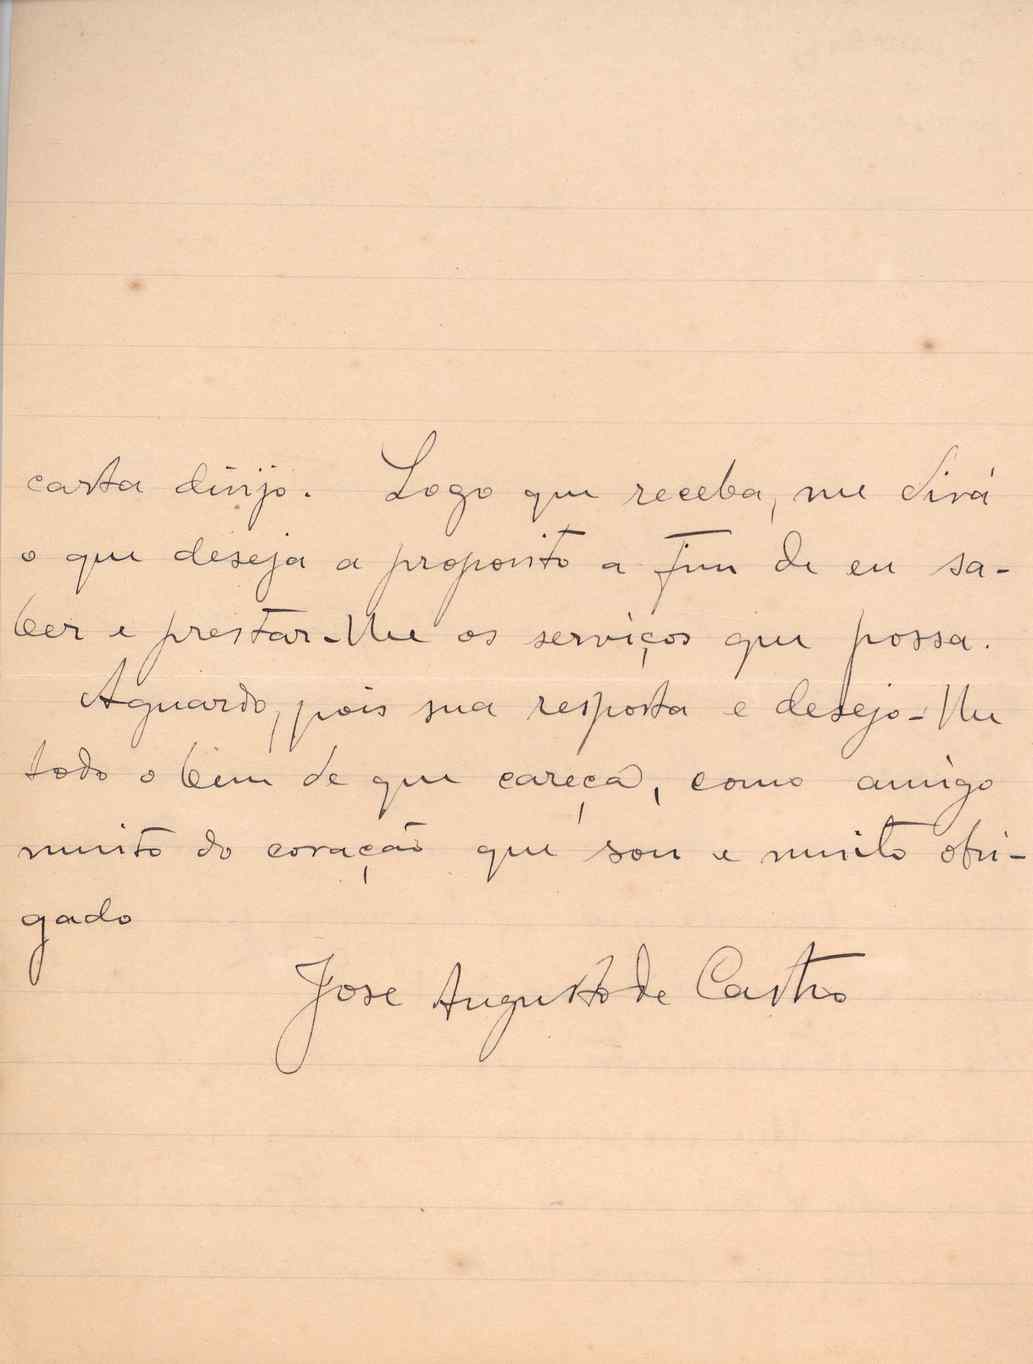 carta dirijo. Logo que receba, me dirá
o que deseja a proposito a fim de eu sa-
ber e prestar-lhe os serviços que possa.
Aguardo, pois sua resposta e desejo-lhe
todo o bem de que careça, como amigo
muito do coração que sou e muito obri-
gado
Jose Augusto de Castro